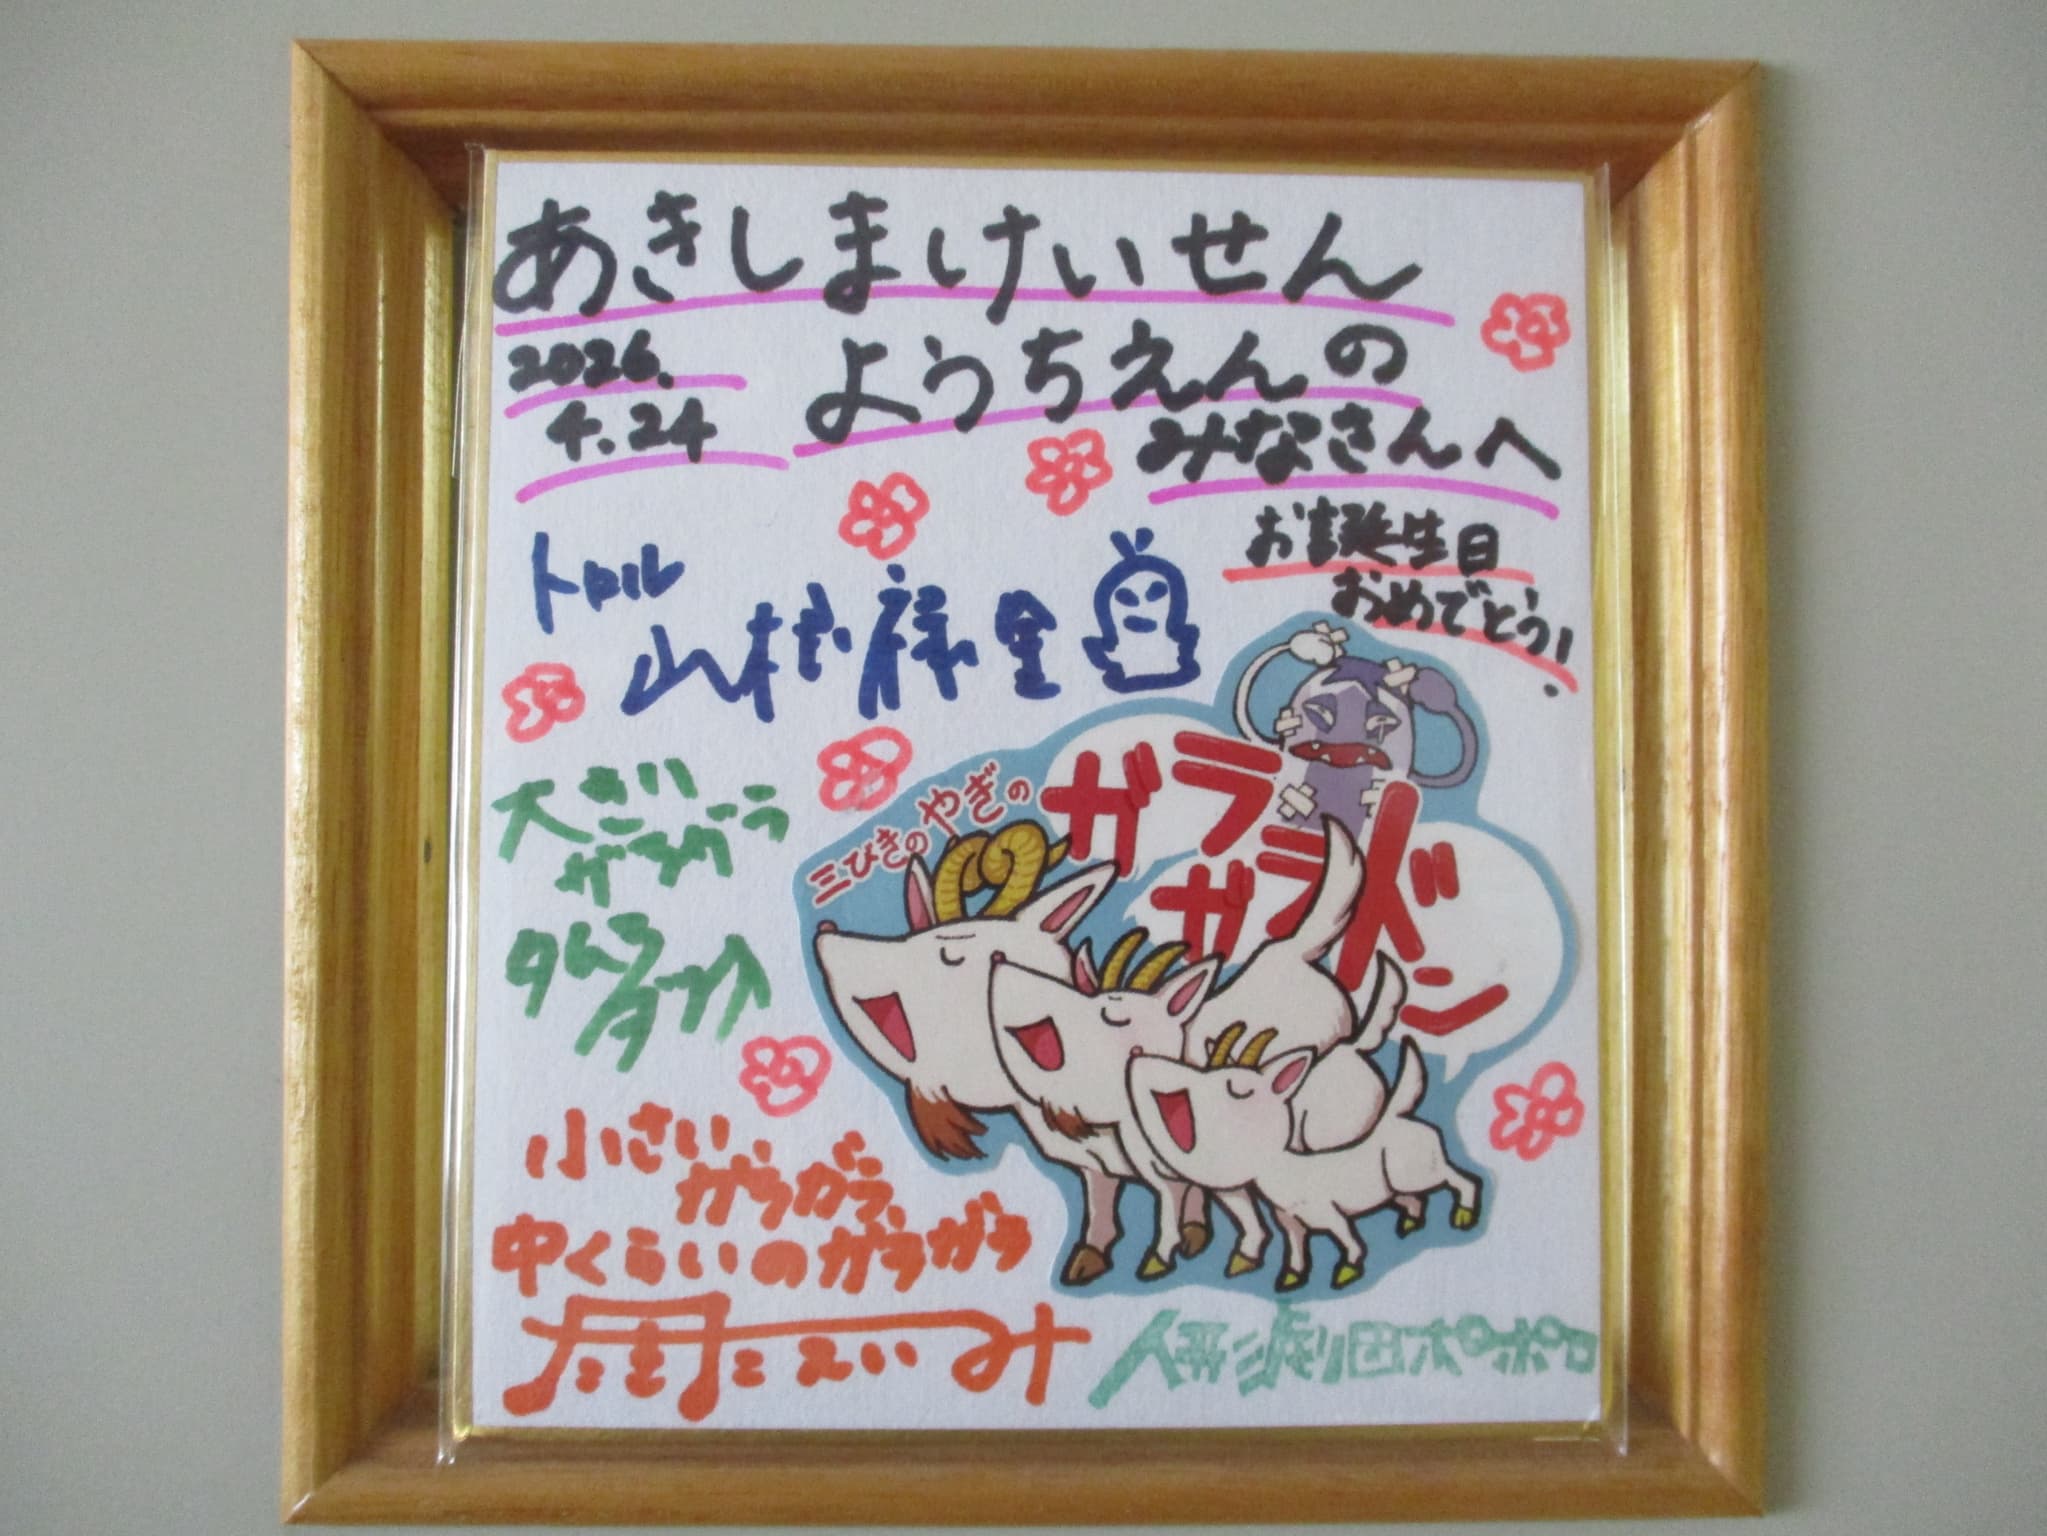 あきしまけいせん
ようちえんの
みなさんへ
2026.
4.24
お誕生日
おめでとう!
トロル
山根禄里
三びきのやぎの
ガラ
ガラ
ドン
大きい
ガラガラ
タムラ
小さい
ガラガラ
中くらいのガラガラ
人形劇団ポポロ